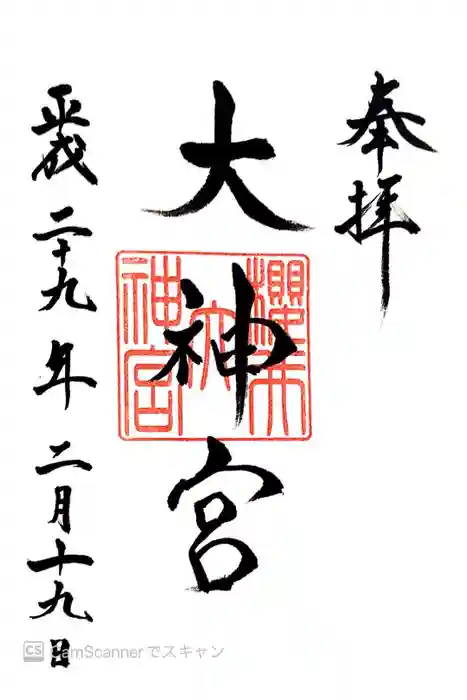 奉拝
大神宮
櫻木
大
神宮
平成二十九年二月十九日
CS CamScannerでスキャン